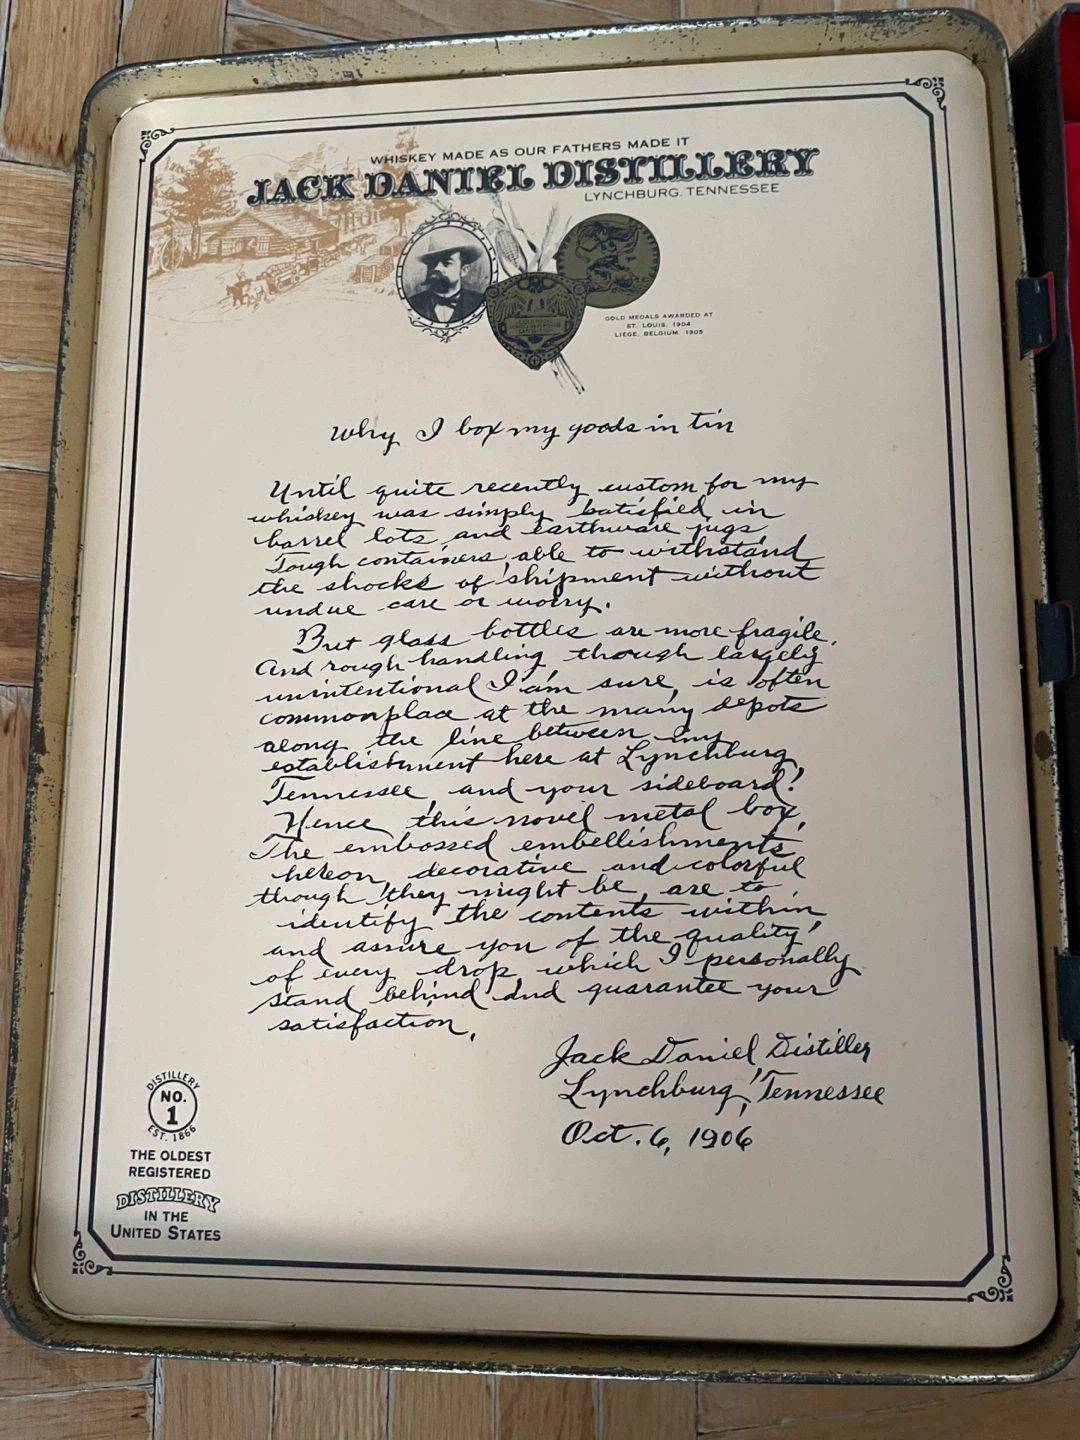 WHISKEY MADE AS OUR FATHERS MADE IT
JACK DANIEL DISTILLERY
LYNCHBURG, TENNESSEE
GOLD MEDALS AWARDED AT
ST. LOUIS, 1904
LIEGE, BELGIUM, 1905
Why I box my goods in tin
Until quite recently custom for my
whiskey was simply satisfied in
barrel lots and earthware jugs
Tough containers, able to withstand
the shocks of shipment without
undue care or worry.
But glass bottles are more fragile.
And rough handling, though largely
unintentional I am sure, is often
commonplace at the many depots
along the line between my
establishment here at Lynchburg,
Tennessee, and your sideboard!
Hence this novel metal box,
The embossed embellishments
hereon, decorative and colorful
though they might be, are to
identify the contents within,
and assure you of the quality
of every drop, which I personally
stand behind and guarantee your
satisfaction.
Jack Daniel Distiller
Lynchburg, Tennessee
Oct. 6, 1906
DISTILLERY
NO.
1
EST. 1866
THE OLDEST
REGISTERED
DISTILLERY
IN THE
UNITED STATES